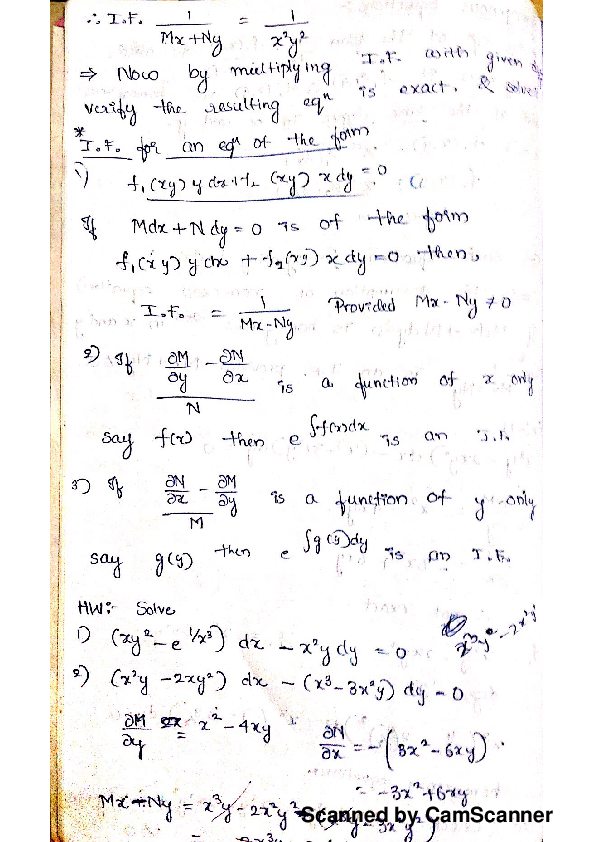 ∴ I.F. 1/(Mx+Ny) = 1/(x²y²)
⇒ Now by multiplying I.F. with given
verify the resulting eqⁿ is exact. & solve
* I.F. for an eqⁿ of the form
1) f₁(xy) y dx + f₂ (xy) x dy = 0
If Mdx + N dy = 0 is of the form
f₁(xy) y dx + f₂(xy) x dy = 0 then,
I.F. = 1/(Mx-Ny) Provided Mx - Ny ≠ 0
2) If (∂M/∂y - ∂N/∂x)/N is a function of x only
say f(x) then e^∫f(x)dx is an I.F.
3) If (∂N/∂x - ∂M/∂y)/M is a function of y only
say g(y) then e^∫g(y)dy is an I.F.
HW:- Solve
1) (xy² - e^1/x³) dx - x²y dy = 0
2) (x²y - 2xy²) dx - (x³ - 3x²y) dy = 0
∂M/∂y = x² - 4xy ∂N/∂x = -(3x² - 6xy)
= -3x² + 6xy
Mx + Ny = x³y - 2x²y²
Scanned by CamScanner